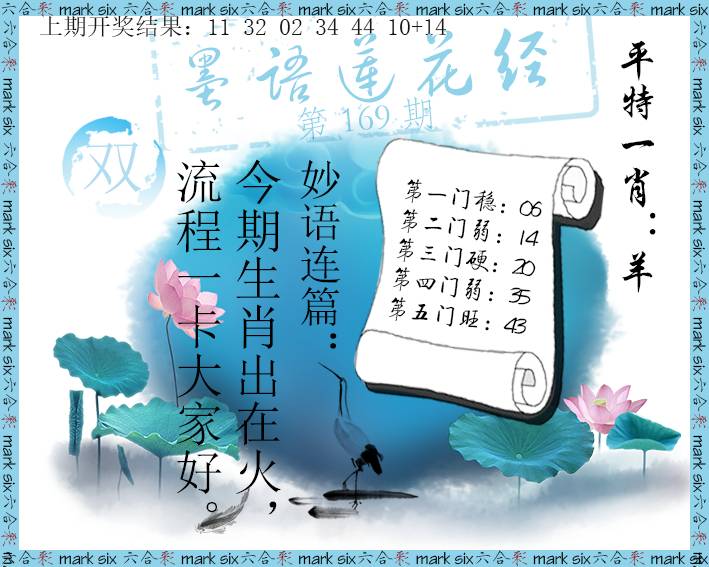 上期开奖结果：11 32 02 34 44 10+14
墨语莲花经
第 169 期
双
平特一肖：羊
妙语连篇：
今期生肖出在火，
流程一卡大家好。
第一门稳：06
第二门弱：14
第三门硬：20
第四门弱：35
第五门旺：43
六合彩 mark six 六合彩 mark six 六合彩 mark six 六合彩 mark six 六合彩 mark six